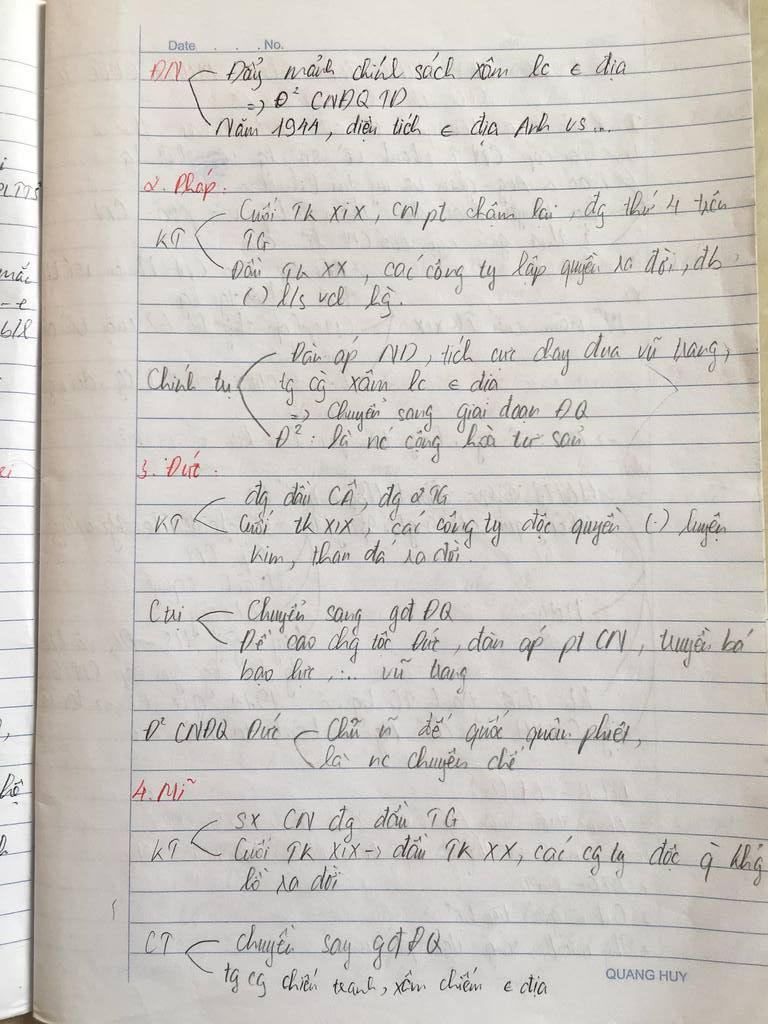 Date . . . . No.
ĐN Đẩy mạnh chính sách xâm lc ϵ địa
=> Đ² CNĐQ TD
Năm 1944, diện tích ϵ địa Anh vs ...
2. Pháp.
Cuối TK XIX, CN pt chậm lại, đg thứ 4 trên
KT
TG
Đầu TK XX, các công ty lập quyền ra đời, đb
(.) l/s vcl hg.
Đàn áp ND, tích cực chạy đua vũ trang,
Chính trị
tg cg xâm lc ϵ địa
=> Chuyển sang giai đoạn ĐQ
Đ²: là nc cộng hòa tư sản
3. Đức.
đg đầu CÂ, đg 2 TG
KT Cuối tk XIX, các công ty độc quyền (.) luyện
kim, than đá ra đời.
Ctrị Chuyển sang gđ ĐQ
Đề cao chg tộc Đức, đàn áp pt CN, truyền bá
bạo lực, ... vũ trang
Đ² CNĐQ Đức Chủ n đế quốc quân phiệt,
là nc chuyên chế
4. Mĩ
SX CN đg đầu TG
KT Cuối TK XIX -> đầu TK XX, các cg ty độc q̀ khg
lồ ra đời
CT chuyển sag gđ ĐQ
tg cg chiến tranh, xâm chiếm ϵ địa
QUANG HUY